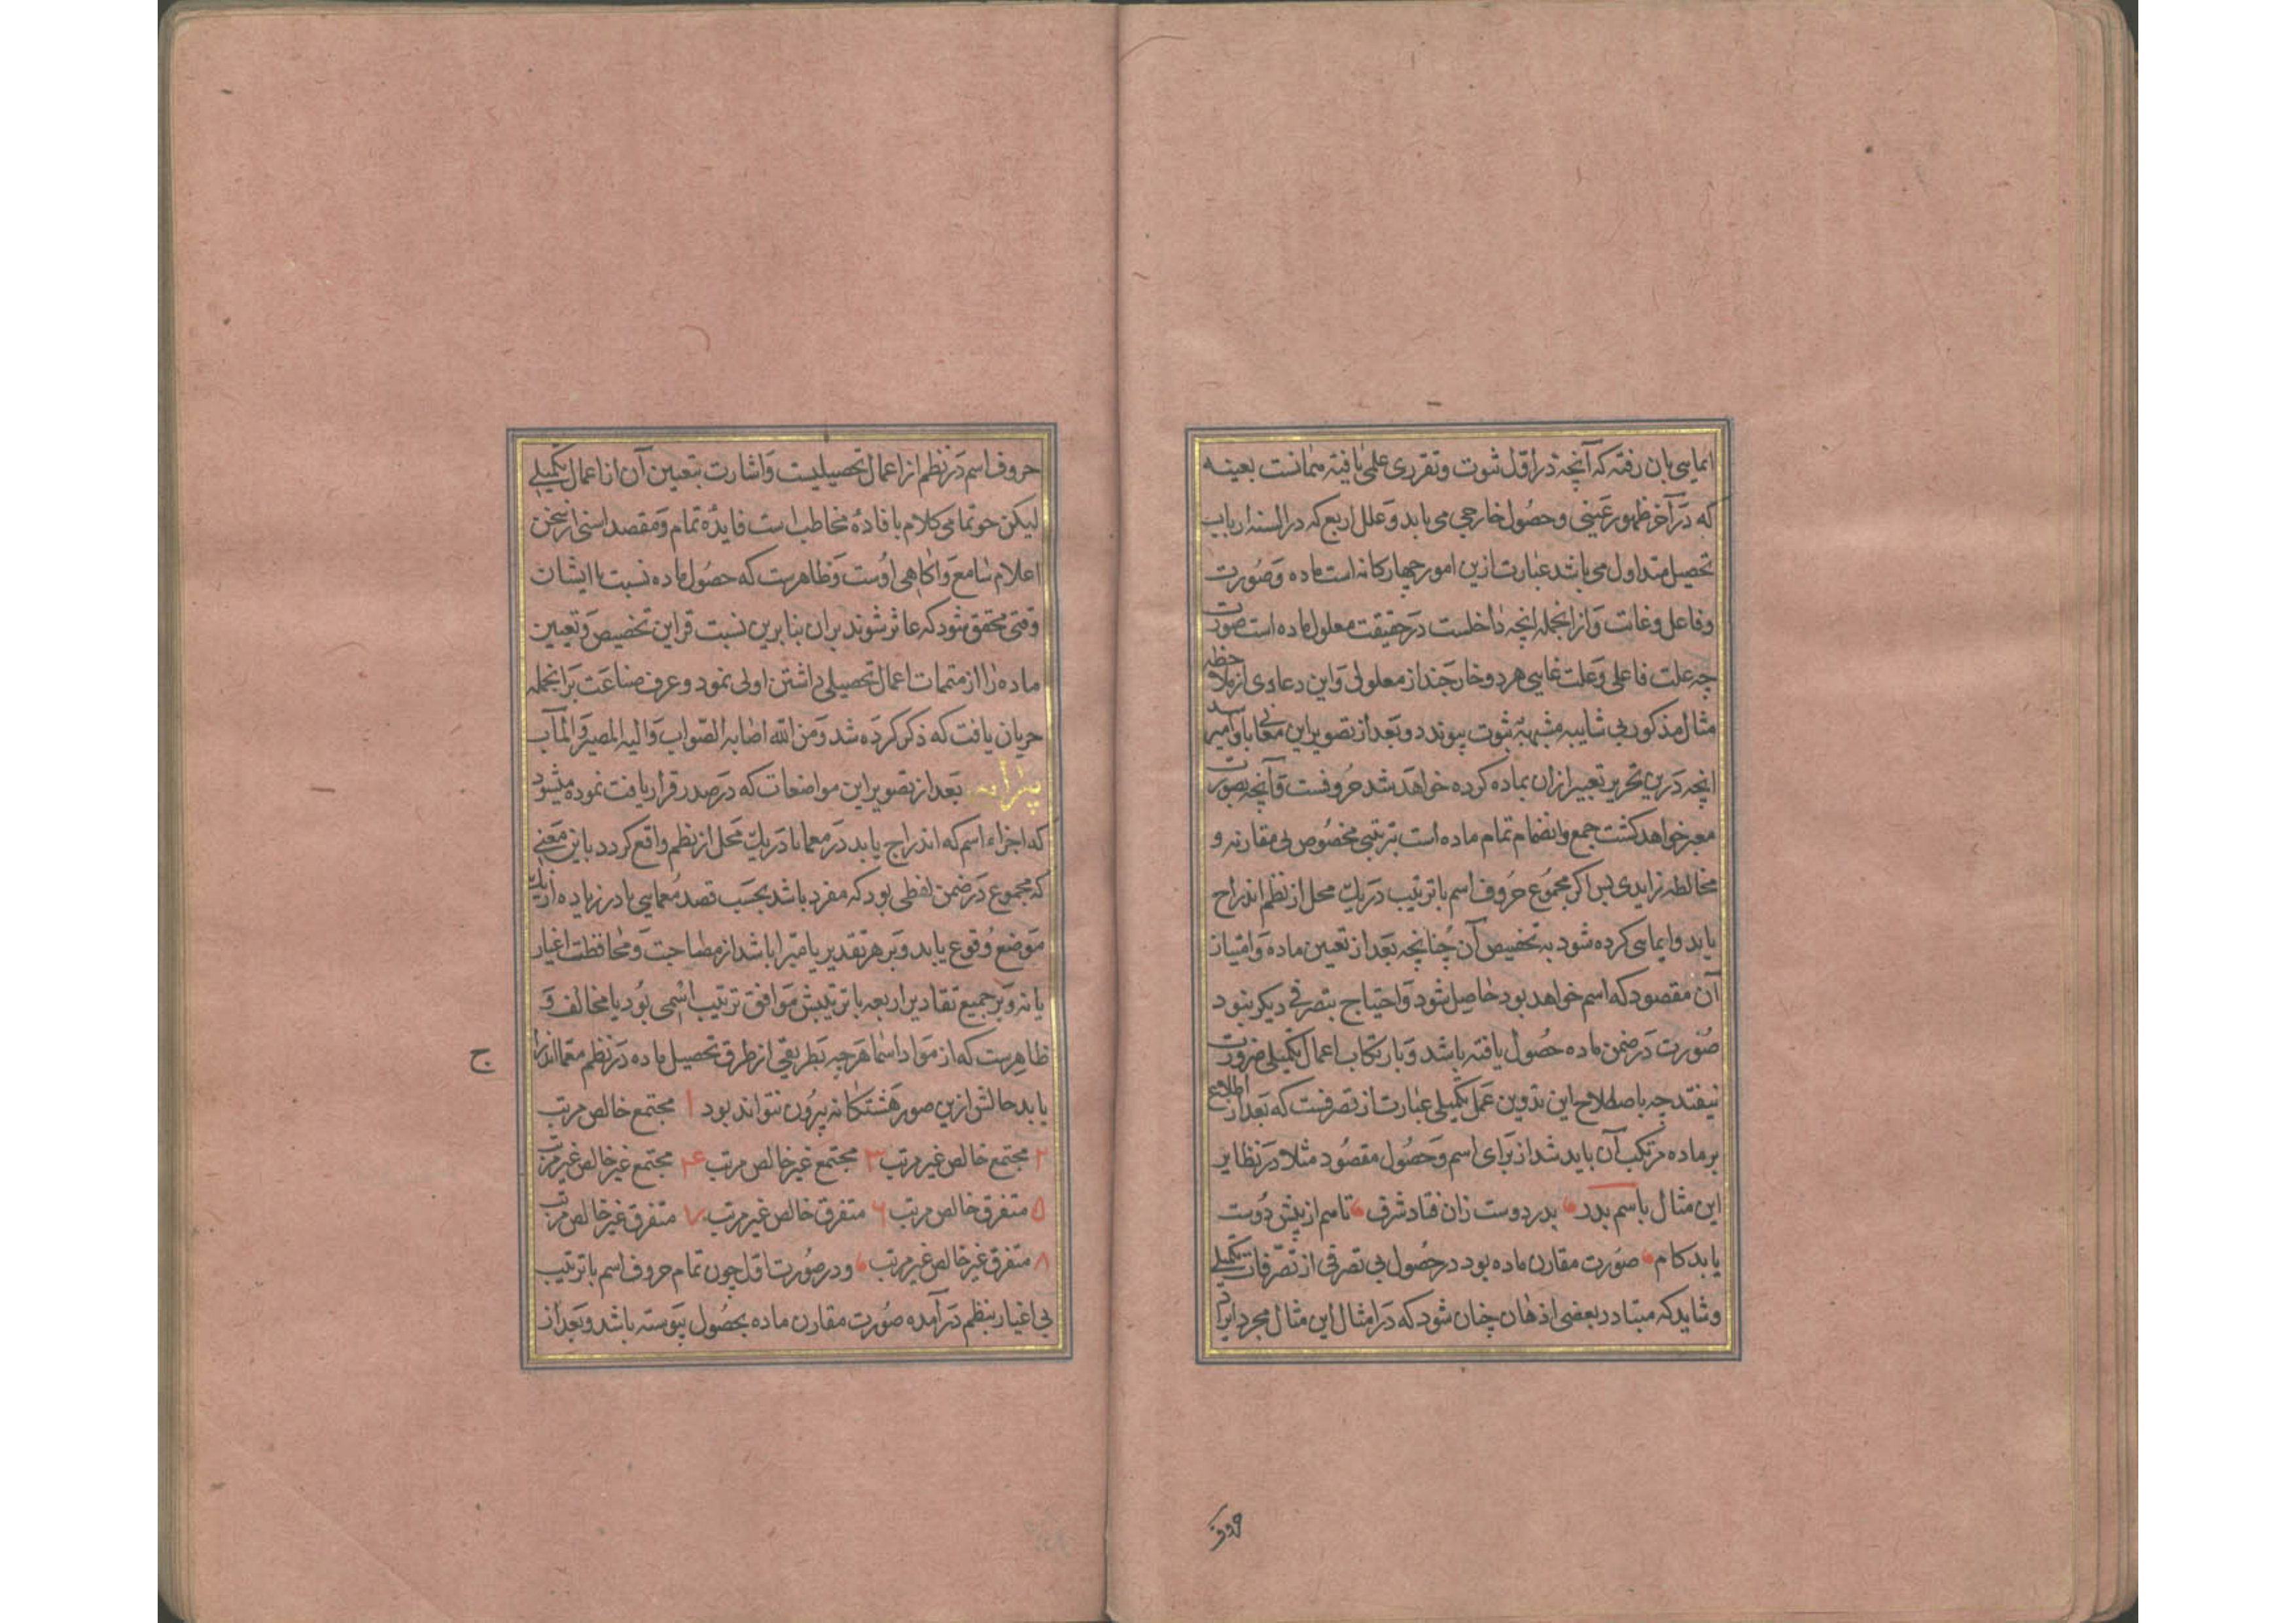 ایمایی بان رفته که آنچه در اول ثبوت و تقرری علمی یافته همانست بعینه
که در آخر ظهور عینی و حصول خارجی می یابد و علل اربع که در السنه ارباب
تحصیل متداول می باشد عبارت ازین امور چهارکانه است ماده و صورت
و فاعل و غایت و از انجمله انچه داخلست در حقیقت معلول ماده است صورت
چه علت فاعلی و علت غایی هر دو خارجند از معلولی و این دعاوی از ملاحظه
مثال مذکور بی شایبه مشبهه ثبوت پیوندد و بعد از تصویر این معانی باید
انچه درین تحریر تعبیر ازان بماده کرده خواهد شد حروفست و آنچه بصورت
معبر خواهد کشت جمع و انضمام تمام ماده است بترتیبی مخصوص بی مقارنه و
مخالطه زایدی پس اکر مجموع حروف اسم با ترتیب در یک محل از نظم اندراج
یابد و ایمایی کرده شود به تخصیص آن چنانچه بعد از تعیین ماده و امتیاز
آن مقصود که اسم خواهد بود حاصل شود و احتیاج بتصرفی دیکر نبود
صورت در ضمن ماده حصول یافته باشد و بارتکاب اعمال تکمیلی ضرورت
نیفتد چه باصطلاح این تدوین عمل تکمیلی عبارت از تصرفست که بعد از اطلاع
بر ماده مرتکب آن باید شد از برای اسم و حصول مقصود مثلا در نظایر
این مثال باسم بدر بدر دوست زان فتاد شرف تاسم از پیش دوست
یابد کام صورت مقارن ماده بود در حصول بی تصرفی از تصرفات تکمیلی
و شاید که متبادر بعضی اذهان چنان شود که در امثال این مثال مجرد ایراد
حروف
حروف اسم در نظم از اعمال تحصیلیست و اشارت بتعیین آن از اعمال تکمیلی
لیکن چو تمامی کلام بافاده مخاطب است فایده تمام و مقصد اسنی از سخن
اعلام سامع و آکاهی اوست و ظاهرست که حصول ماده نسبت با ایشان
وقتی محقق شود که عاثر شوند بران بنا برین نسبت قراین تخصیص و تعیین
ماده را از متممات اعمال تحصیلی داشتن اولی نمود و عرف صناعت بر انجمله
جریان یافت که ذکر کرده شد و من الله اصابه الصواب و الیه المصیر و المآب
پیرایه بعد از تصویر این مواضعات که در صدر قرار یافت نموده میشود
که اجزاء اسم که اندراج یابد در معما یا در یک محل از نظم واقع کردد باین معنی
که مجموع در ضمن لفظی بود که مفرد باشد بحسب قصد معمایی یا در زیاده از یک
موضع وقوع یابد و بر هر تقدیر یا مبرا باشد از مصاحبت و محافظت اغیار
یا نه و بر جمیع تقادیر اربعه یا ترتیبش موافق ترتیب اسمی بود یا مخالف و
ظاهرست که از مواد اسما هر چه بطریقی از طرق تحصیل ماده در نظم معما اندراج
ج
یابد حالش ازین صور هشتکانه بیرون نتواند بود ۱ مجتمع خالص مرتب
۲ مجتمع خالص غیر مرتب ۳ مجتمع غیر خالص مرتب ۴ مجتمع غیر خالص غیر مرتب
۵ متفرق خالص مرتب ۶ متفرق خالص غیر مرتب ۷ متفرق غیر خالص مرتب
۸ متفرق غیر خالص غیر مرتب و در صورت اول چون تمام حروف اسم با ترتیب
بی اغیار بنظم درآمده صورت مقارن ماده بحصول پیوسته باشد و بعد از